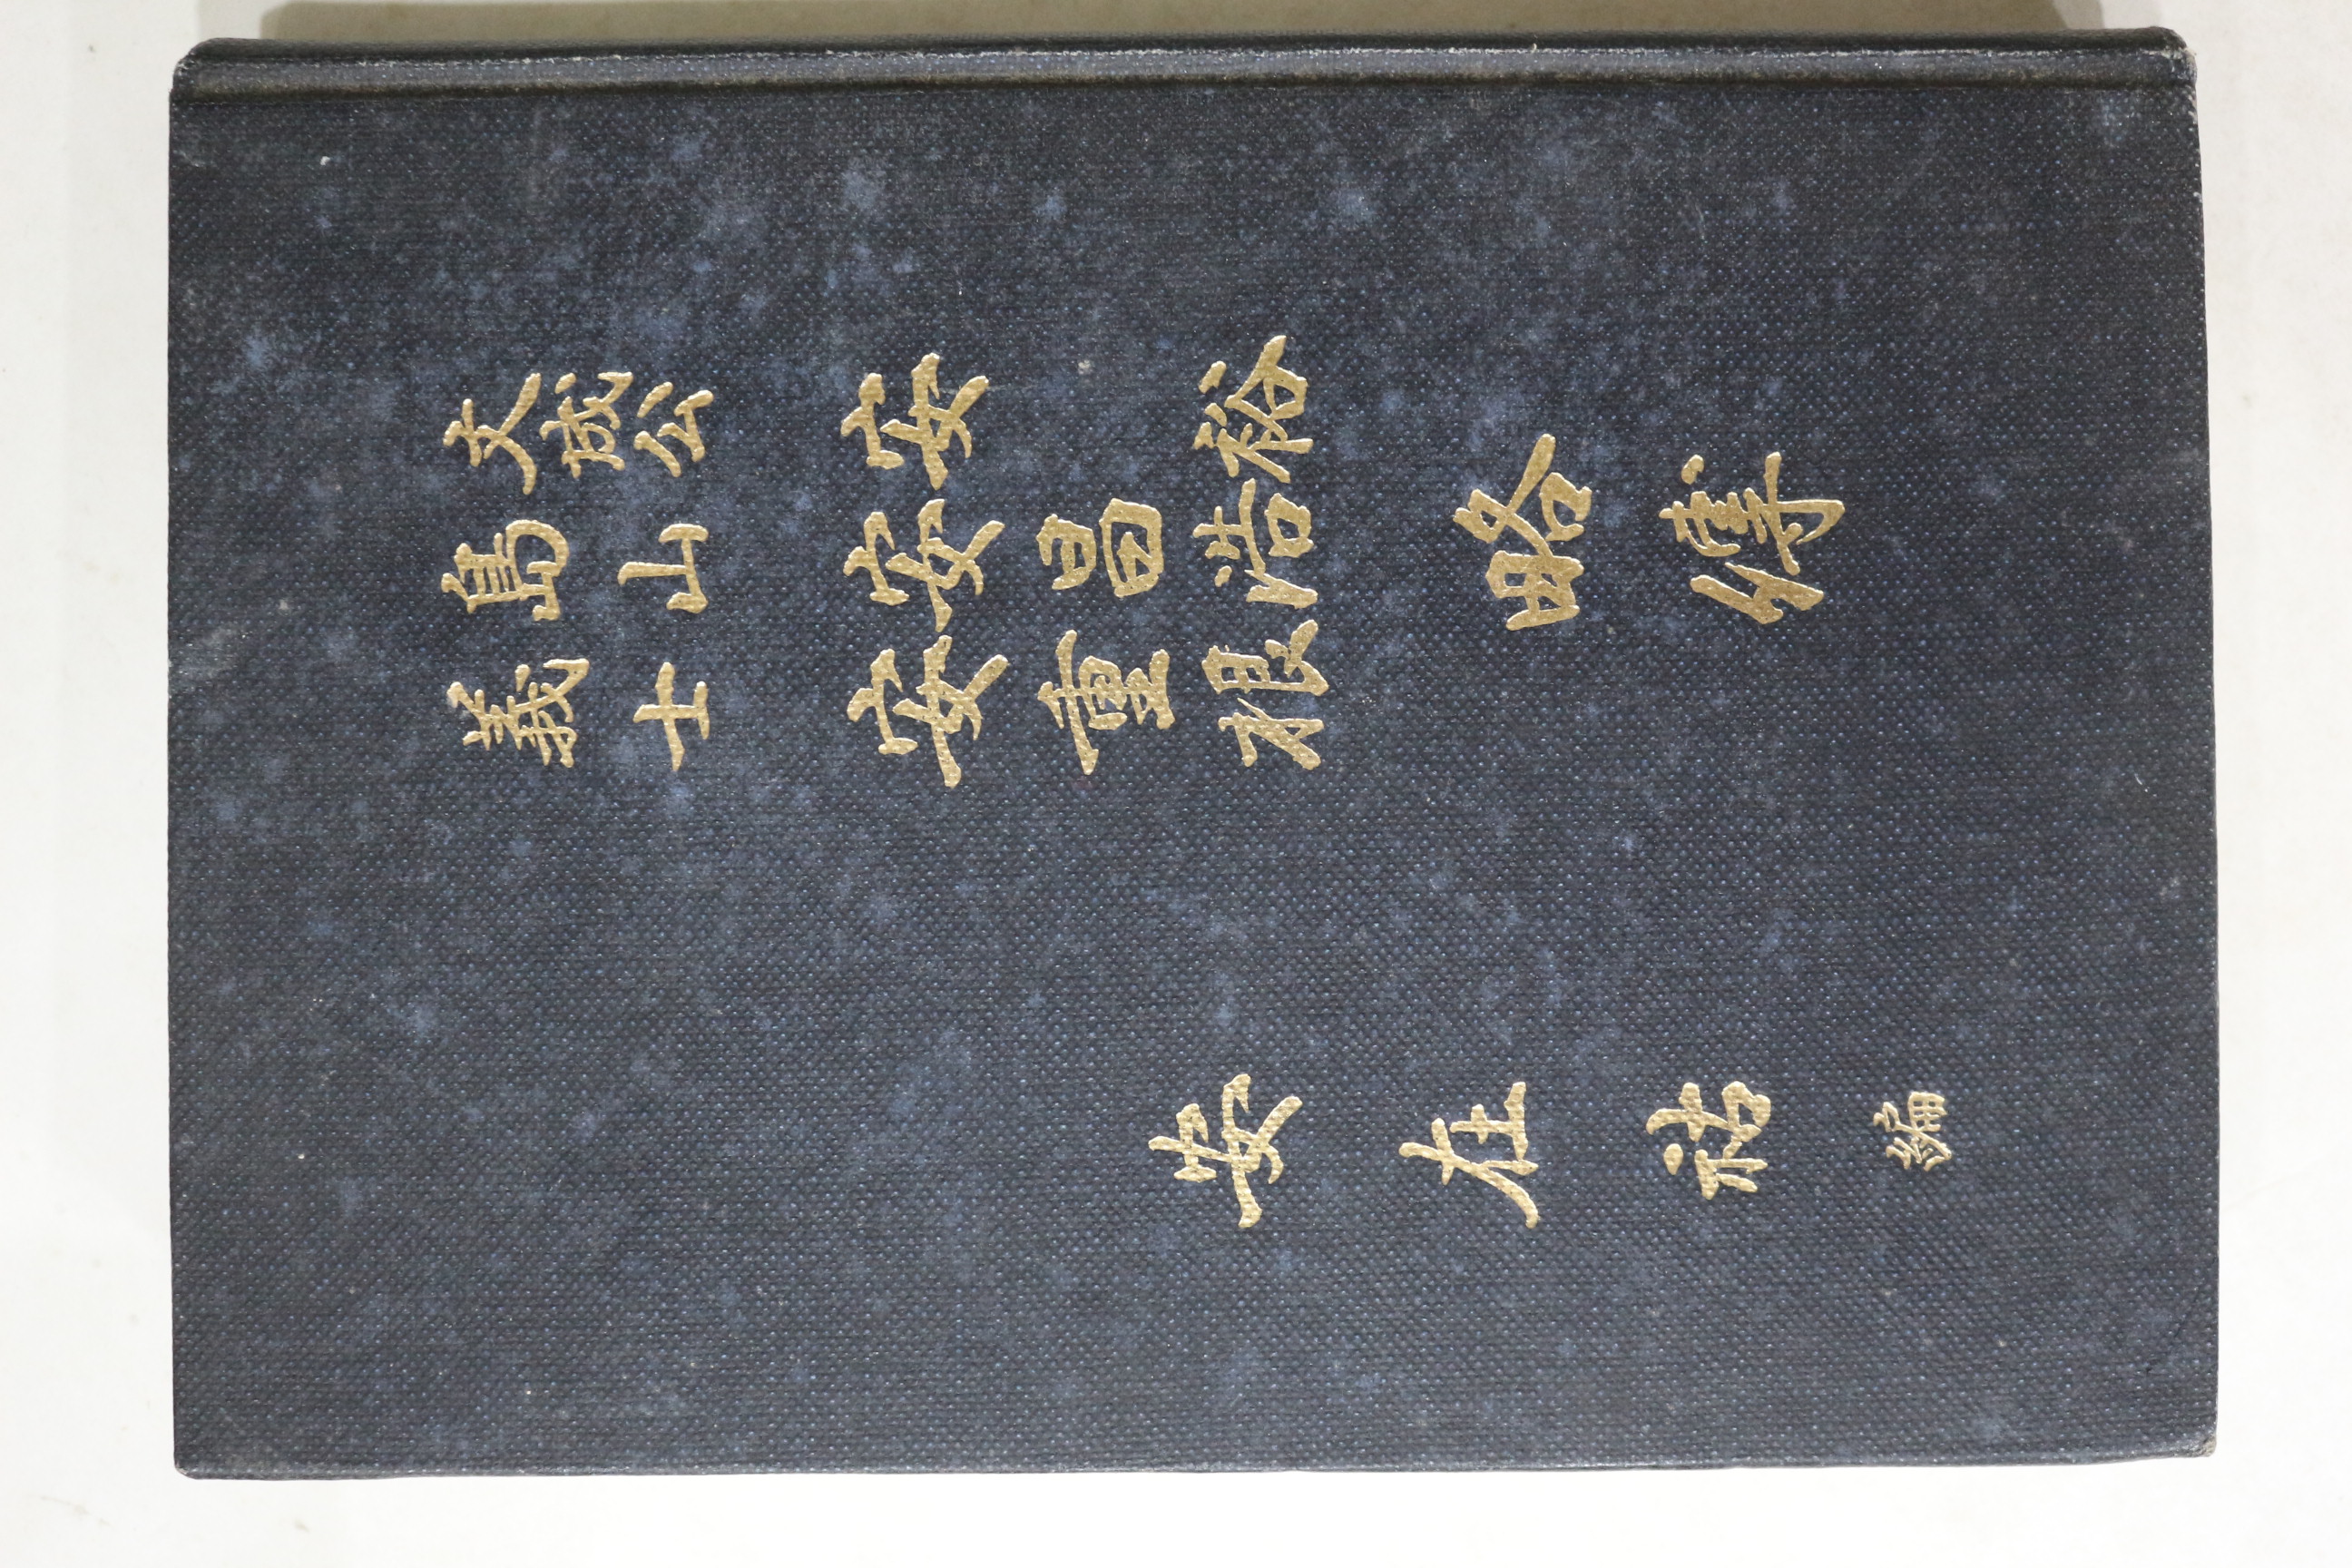 文成公 安裕
島山 安昌浩
義士 安重根
略傳
安在祜 編